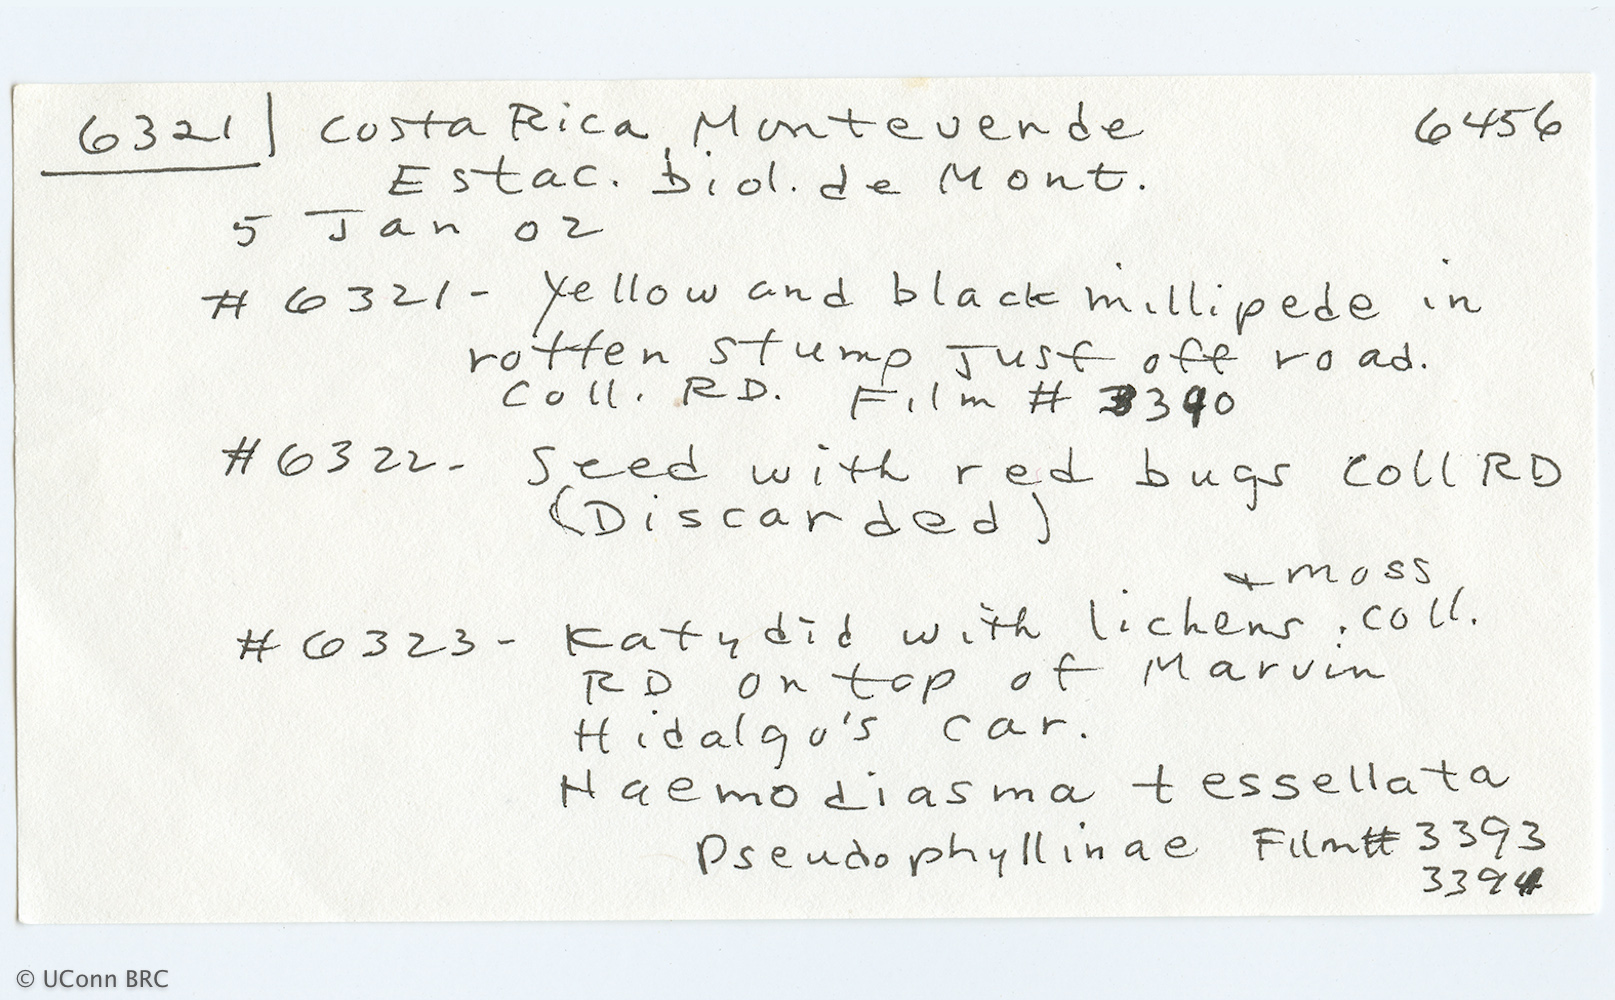 6321 Costa Rica, Monteverde 6456
Estac. biol. de Mont.
5 Jan 02
# 6321 - Yellow and black millipede in
rotten stump Just off road.
Coll. RD. Film # 3390
# 6322 - Seed with red bugs Coll RD
(Discarded)
+ moss
# 6323 - Katydid with lichens. Coll.
RD on top of Marvin
Hidalgo's car.
Haemodiasma tessellata
Pseudophyllinae Film # 3393
3394
© UConn BRC